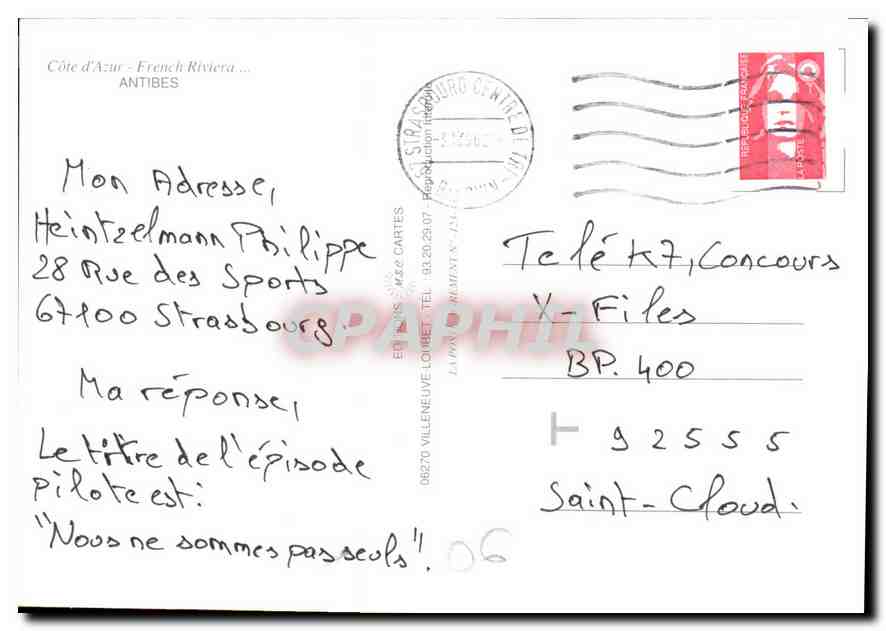 Côte d'Azur - French Riviera....
ANTIBES
Mon Adresse,
Heintzelmann Philippe
28 Rue des Sports
67100 Strasbourg.
Ma réponse,
Le titre de l'épisode
pilote est:
"Nous ne sommes pas seuls".
06
EDITIONS MSC CARTES
06270 VILLENEUVE-LOUBET - TÉL. 93.20.29.07 - Reproduction interdite
STRASBOURG CENTRE DE TRI
BAS RHIN
REPUBLIQUE FRANÇAISE
LA POSTE
Telé K7, Concours
X-Files
BP. 400
T
92555
Saint-Cloud.
CPAPHIL